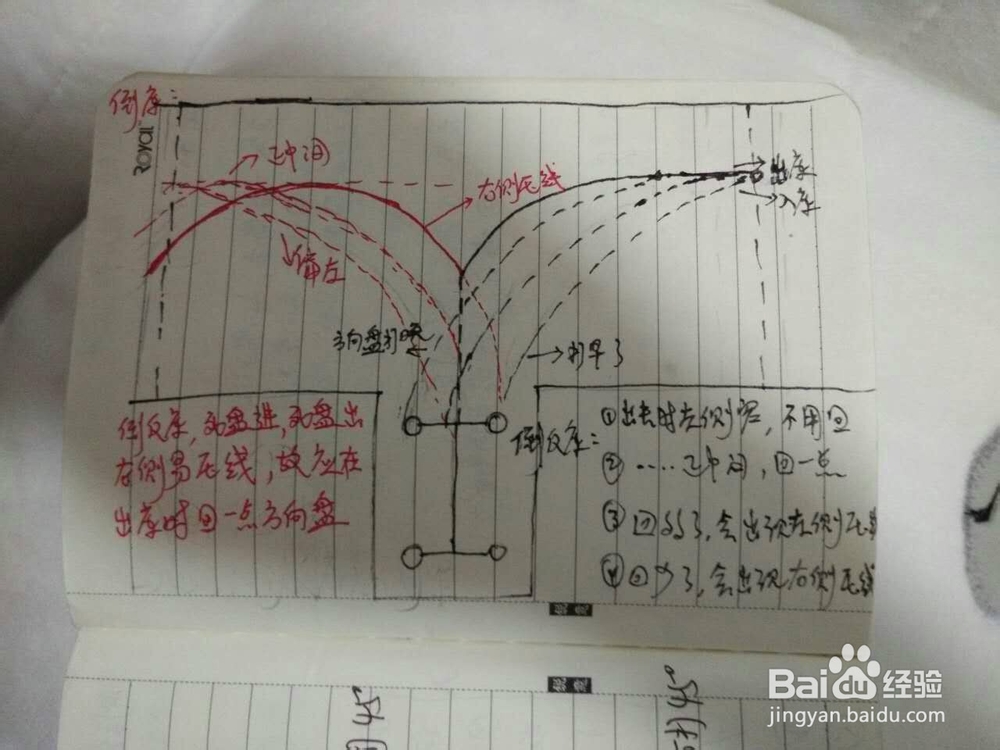 倒库:
ROYAL
正中间
右侧压线
出库
入库
偏左
方向盘打晚
打早了
倒反库,死盘进,死盘出
右侧易压线,故应在
出库时回一点方向盘
倒反库:
①出去时左侧宽,不用回
②……正中间,回一点
③回多了,会出现左侧压线
④回少了,会出现右侧压线
Baidu经验
jingyan.baidu.com